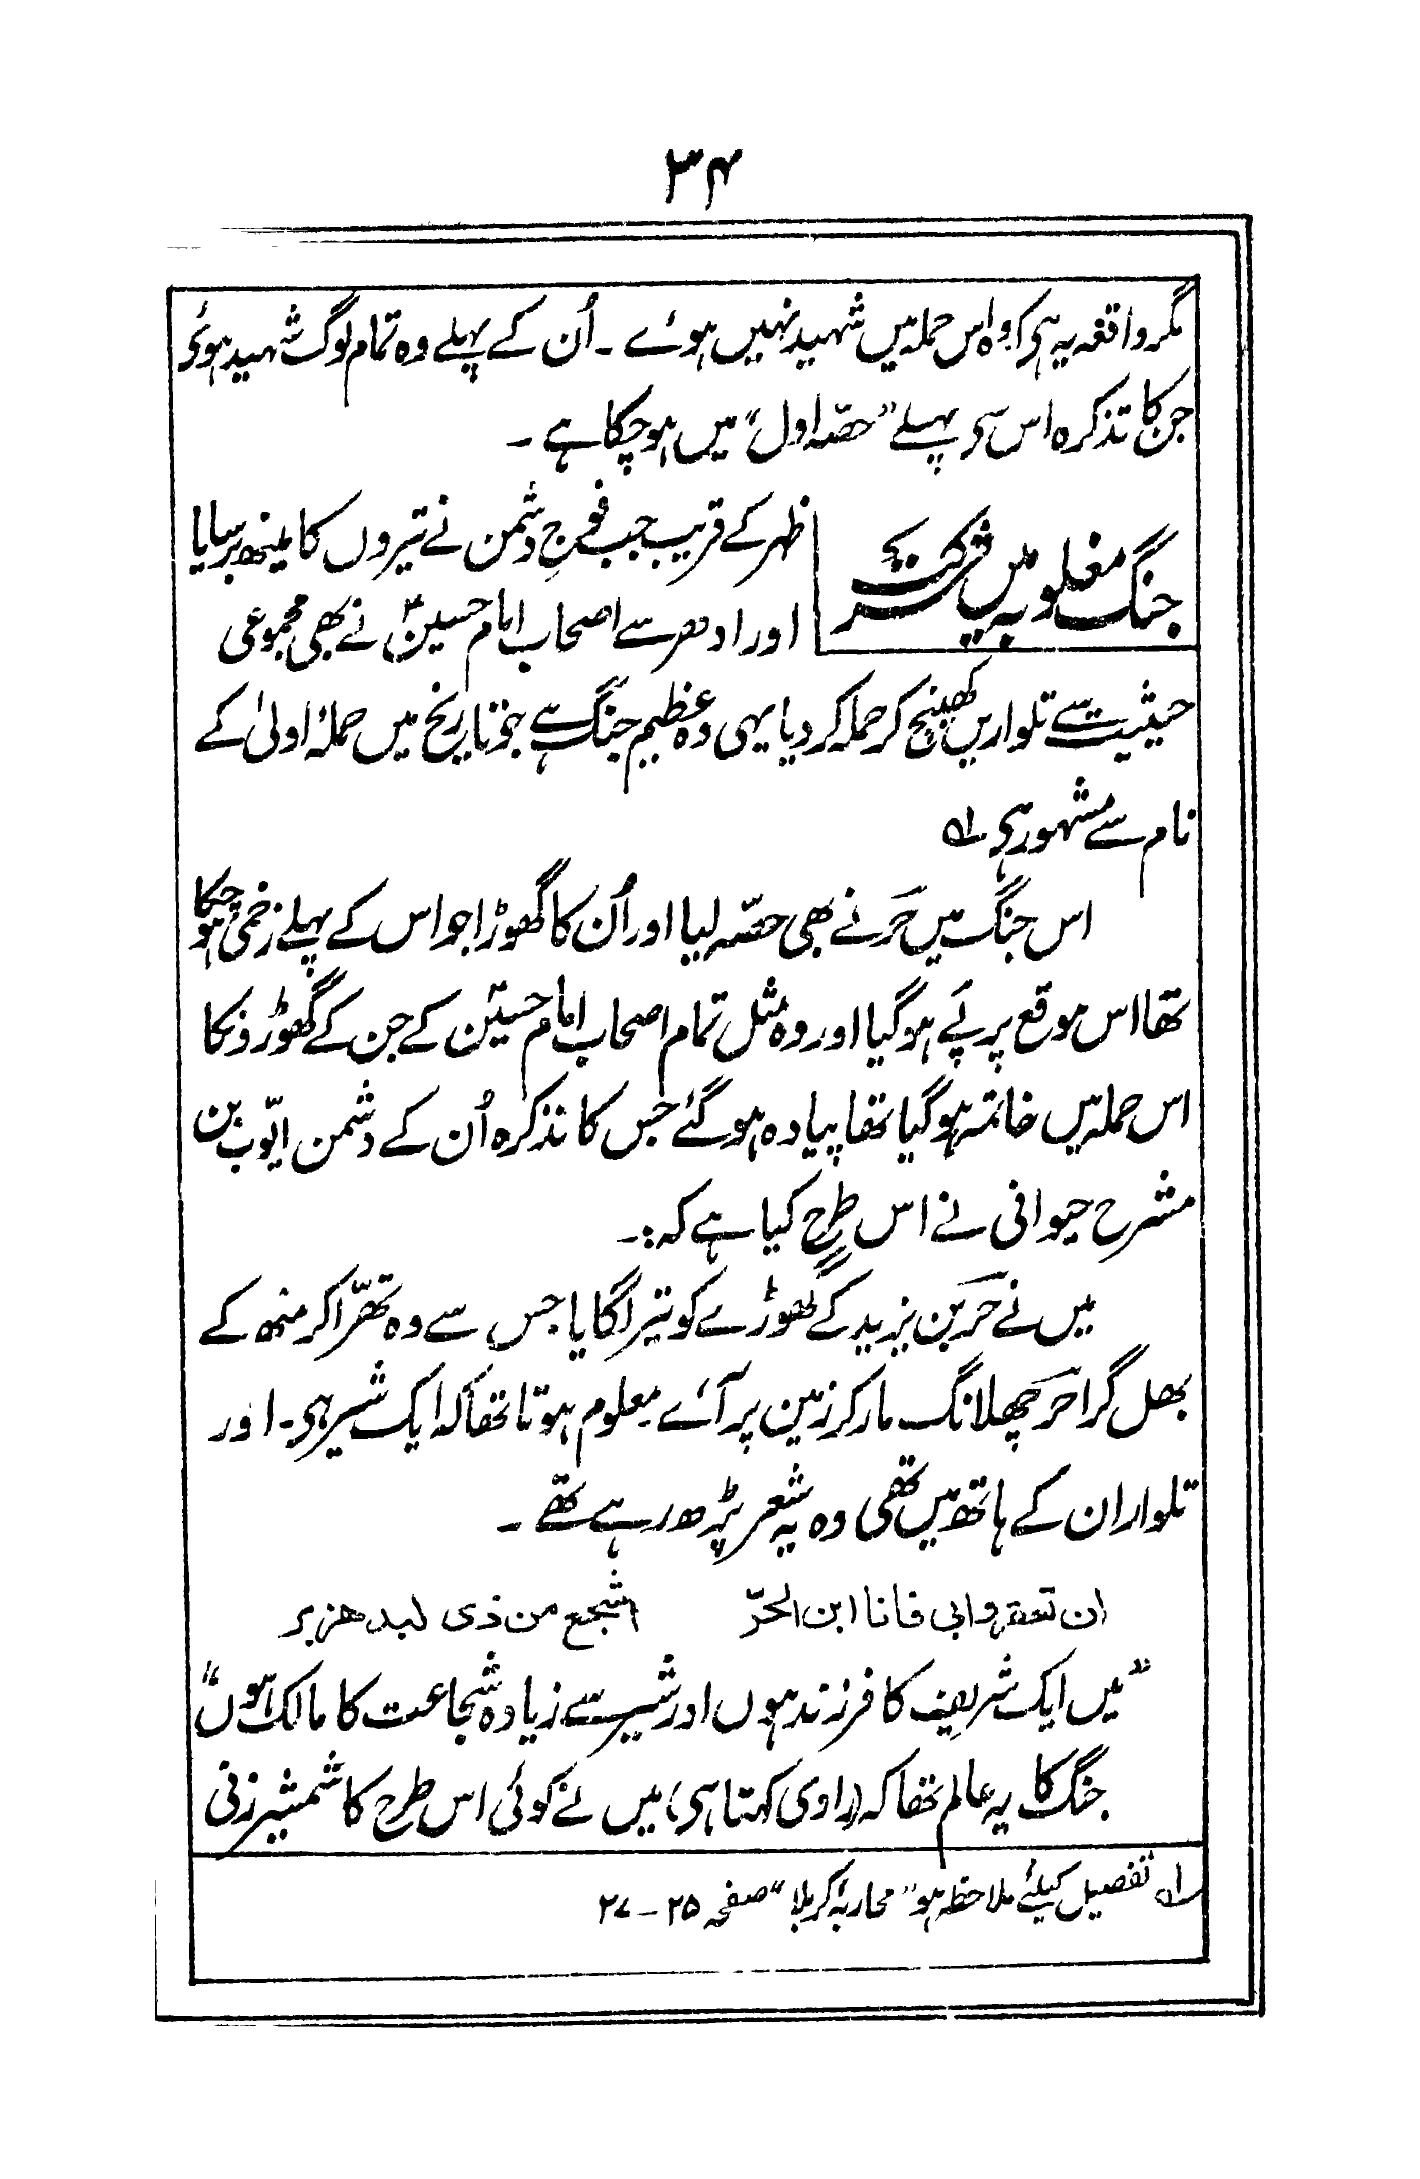 ۳۴
مگر واقعہ یہ ہی کہ وہ اس حملہ میں شہید نہیں ہوئے ۔ اُن کے پہلے وہ تمام لوگ شہید ہوئی
جن کا تذکرہ اس سے پہلے ”حصّہ اول“ میں ہو چکا ہے ۔
جنگ مغلوبہ میں شرکت
ظہر کے قریب جب فوجِ دشمن نے تیروں کا مینھ برسایا
اور ادھر سے اصحاب امام حسینؑ نے بھی مجموعی
حیثیت سے تلواریں کھینچ کر حملہ کر دیا یہی وہ عظیم جنگ ہے جو تاریخ میں حملۂ اولیٰ کے
نام سے مشہور ہی ؂۱
اس جنگ میں حر نے بھی حصّہ لیا اور اُن کا گھوڑا جو اس کے پہلے زخمی ہو چکا
تھا اس موقع پر پَے ہو گیا اور وہ مثل تمام اصحاب امام حسینؑ کے جن کے گھوڑونکا
اس حملہ میں خاتمہ ہو گیا تھا پیادہ ہو گئے جس کا تذکرہ اُن کے دشمن ایّوب بن
مشرح حیوانی نے اس طرح کیا ہے کہ:۔
میں نے حر بن یزید کے گھوڑے کو تیر لگایا جس سے وہ تھرّا کر منھ کے
بھل گرا حر چھلانگ مار کر زمین پر آئے ۔ معلوم ہوتا تھا کہ ایک شیر ہی ۔ اور
تلوار ان کے ہاتھ میں تھی وہ یہ شعر پڑھ رہے تھے ۔
ان تعقروابی فانا ابن الحرّ اشجع من ذی لبد هزبر
”میں ایک شریف کا فرزند ہوں اور شیر سے زیادہ شجاعت کا مالک ہوں“
جنگ کا یہ عالم تھا کہ (راوی کہتا ہی) میں نے کوئی اس طرح کا شمشیر زنی
؂۱ تفصیل کیلئے ملاحظہ ہو ”محاربۂ کربلا“ صفحہ ۲۵ – ۲۷